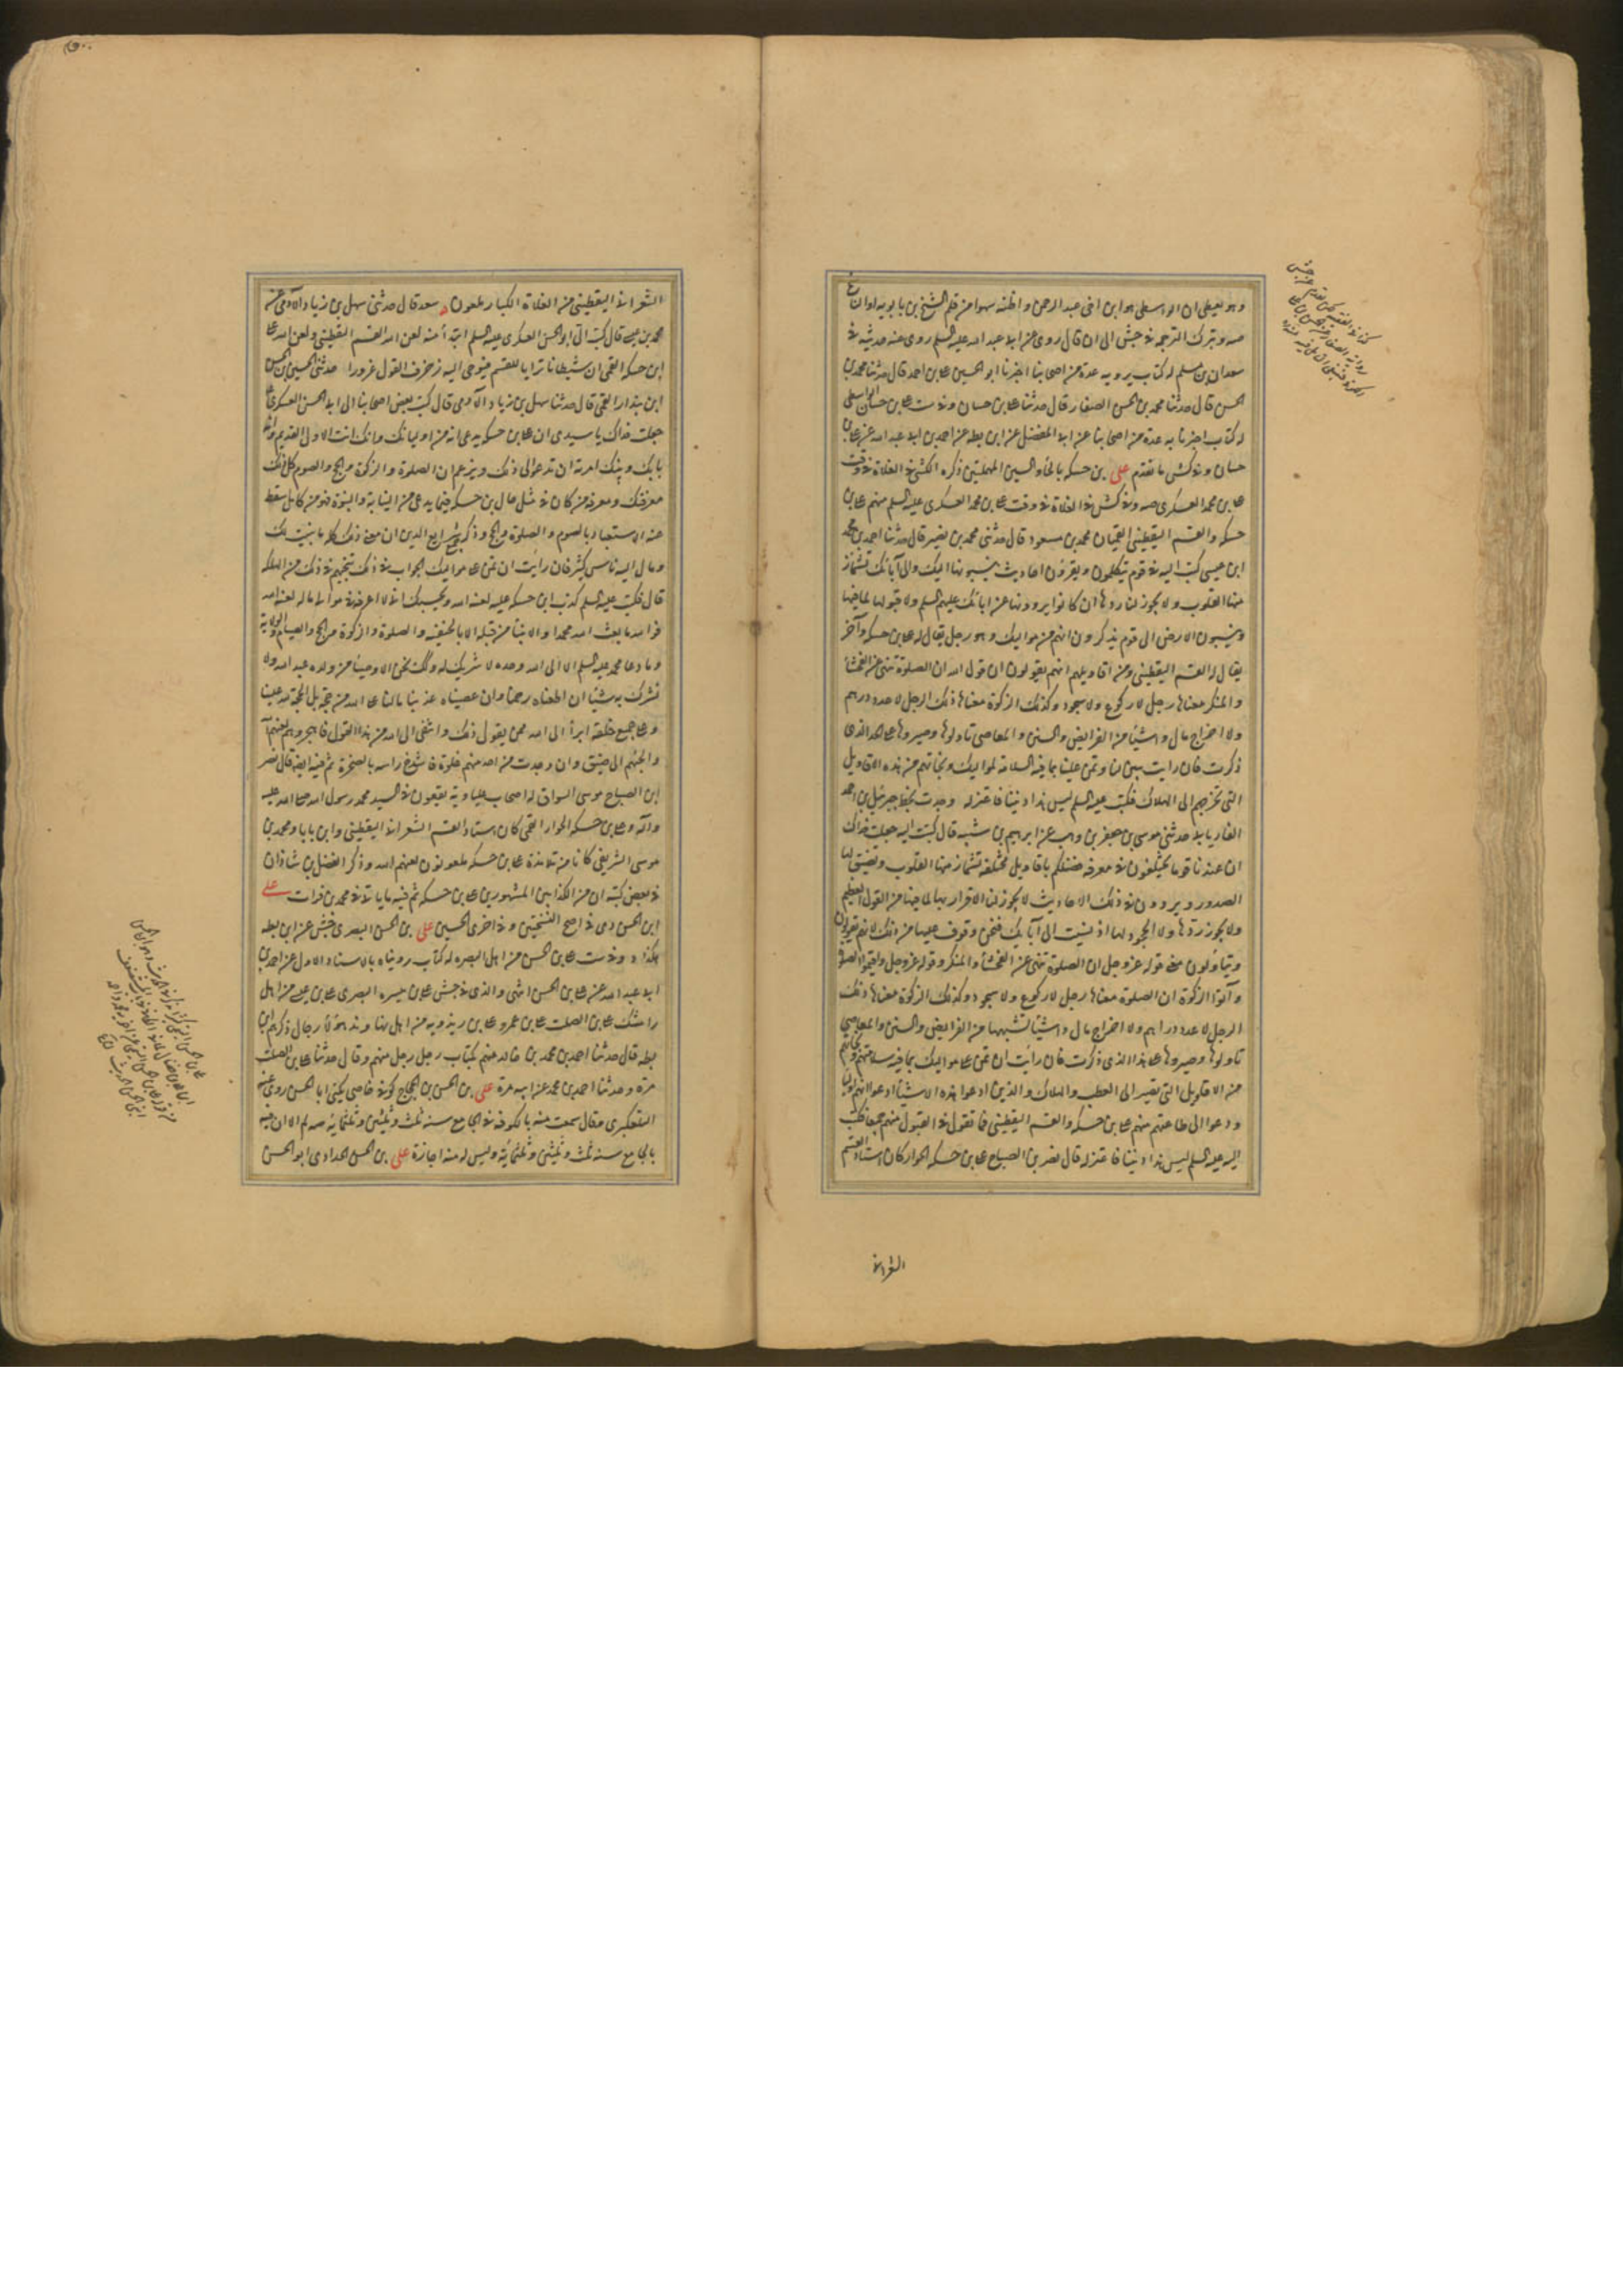 وهو يعطى ان الواسطى هو ابن اخى عبد الرحمن واظنه سهوا من قلم الشيخ بن بابويه اوان
صه وبترك الترجمة في جش الى ان قال روى عن ابى عبد الله عليه السلم روى عنه حديثه في
سعدان بن مسلم له كتاب يرويه عدة من اصحابنا اخبرنا ابو الحسين على بن احمد قال حدثنا محمد بن
الحسن قال حدثنا محمد بن الحسن الصفار قال حدثنا على بن حسان وفي ست على بن حسان الواسطى
له كتاب اخبرنا به عدة من اصحابنا عن ابى المفضل عن ابن بطه عن احمد بن ابى عبد الله عن على بن
حسان وفي كش ما تقدم على بن حسكه بالحاء والسين المهملتين ذكره الكشى في الغلاة في وقت
على بن محمد العسكرى صه وفي كش في الغلاة في وقت على بن محمد العسكرى عليه السلم منهم على بن
حسكه والقسم اليقطينى القميان محمد بن مسعود قال حدثنى محمد بن نصير قال حدثنا احمد بن محمد
ابن عيسى كتب اليه في قوم يتكلمون ويقرؤن احاديث ينسبونها اليك والى آبائك تشمأز
منها القلوب ولا يجوز لنا ردها ان كانوا يروونها عن ابائك عليهم السلم ولا قبولها لما فيها
وينسبون الارض الى قوم يذكرون انهم من مواليك وهو رجل يقال له على بن حسكه وآخر
يقال له القسم اليقطينى ومن اقاويلهم انهم يقولون ان قول الله ان الصلوة تنهى عن الفحشا
والمنكر معناها رجل لا ركوع ولا سجود وكذلك الزكوة معناها ذلك الرجل لا عدد دراهم
ولا اخراج مال واشيا من الفرايض والسنن والمعاصى تاولوها وصيروها على هذا الذى
ذكرت فان رايت تبين لنا وتمن علينا بما فيه السلامة لمواليك ونجاتهم من هذه الاقاويل
التى تخرجهم الى الهلاك فكتب عليه السلم ليس هذا ديننا فاعتزله وجدت بخط جبرئيل بن احمد
الفاريابى حدثنى موسى بن جعفر بن وهب عن ابرهيم بن شيبه قال كتبت اليه جعلت فداك
ان عندنا قوما يختلفون في معرفة فضلكم باقاويل مختلفة تشمأز منها القلوب وتضيق لها
الصدور ويروون في ذلك الاحاديث لا يجوز لنا الاقرار بها لما فيها من القول العظيم
ولا يجوز ردها ولا الجحود لها اذ نسبت الى آبائك فنحن وقوف عليها من ذلك لانهم يقولون
ويتاولون معنى قوله عز وجل ان الصلوة تنهى عن الفحشا والمنكر وقوله عز وجل واقيموا الصلوة
وآتوا الزكوة ان الصلوة معناها رجل لا ركوع ولا سجود وكذلك الزكوة معناها ذلك
الرجل لا عدد دراهم ولا اخراج مال واشيا تشبهها من الفرايض والسنن والمعاصى
تاولوها وصيروها على هذا الذى ذكرت فان رايت ان تمن على مواليك بما فيه سلامتهم ونجاتهم
من الاقاويل التى تصير الى العطب والهلاك والذين ادعوا هذه الاشيا ادعوا انهم اوليا
ودعوا الى طاعتهم منهم على بن حسكه والقسم اليقطينى فما تقول في القبول منهم جميعا فكتب
اليه عليه السلم ليس هذا ديننا فاعتزله قال نصر بن الصباح على بن حسكه الحوار كان استاد القسم
الشعرانى
الشعرانى اليقطينى من الغلاة الكبار ملعون سعد قال حدثنى سهل بن زياد الآدمى عن
محمد بن عيسى قال كتب الى ابو الحسن العسكرى عليه السلم ابتدأ منه لعن الله القسم اليقطينى ولعن الله على
ابن حسكه القمى ان شيطانا ترايا للقسم فيوحى اليه زخرف القول غرورا حدثنى الحسين بن الحسن
ابن بندار القمى قال حدثنا سهل بن زياد الآدمى قال كتب بعض اصحابنا الى ابى الحسن العسكرى
جعلت فداك يا سيدى ان على بن حسكه يدعى انه من اوليائك وانك انت الاول القديم وانه
بابك ونبيك امرته ان تدعوا الى ذلك ويزعم ان الصلوة والزكوة والحج والصوم كل ذلك
معرفتك ومعرفة من كان في مثل حال بن حسكه فيما يدعى من النيابة والنبوة فهو مومن كامل سقط
عنه الاستعباد بالصوم والصلوة والحج وذكر جميع شرايع الدين ان معنى ذلك كله ما يثبت لك
ومال اليه ناس كثير فان رايت ان تمن على مواليك بجواب في ذلك تنجيهم في ذلك من الهلكة
قال فكتب عليه السلم كذب ابن حسكه عليه لعنة الله وبحسبك انى لا اعرفه في موالى ما له لعنه الله
فوالله ما بعث الله محمدا والانبيا من قبله الا بالحنيفية والصلوة والزكوة والحج والصيام والولاية
وما دعا محمد عليه السلم الا الى الله وحده لا شريك له وكذلك نحن الاوصيا من ولده عبيد الله ولا
نشرك به شيئا ان اطعناه رحمنا وان عصيناه عذبنا مالنا على الله من حجة بل الحجة لله علينا
وعلى جميع خلقه ابرأ الى الله ممن يقول ذلك وانتفى الى الله من هذا القول فاهجروهم لعنهم الله
والجئوهم الى ضيق وان وجدت من احد منهم خلوة فاشدخ راسه بالصخرة ثم فيه ايضا قال نصر
ابن الصباح موسى السواق له اصحاب علياوية يقعون في السيد محمد رسول الله صلى الله عليه
وآله وعلى بن حسكه الحوار القمى كان استاد القسم الشعرانى اليقطينى وابن بابا ومحمد بن
موسى الشريقى كانا من تلامذة على بن حسكه ملعونون لعنهم الله وذكر الفضل بن شاذان
في بعض كتبه ان من الكذابين المشهورين على بن حسكه ثم فيه ما ياتى في محمد بن فرات على
ابن الحسن دى في اصح النسختين وفي اخرى الحسين على بن الحسن البصرى جش عن ابن بطه
هكذا وفي ست على بن الحسن من اهل البصره له كتاب رويناه بالاسناد الاول عن احمد بن
ابى عبد الله عن على بن الحسن انتهى والذى في جش على بن ميسره البصرى على بن عيسى من اهل
رامشك على بن الصلت على بن عمرو على بن ريذويه من اهل نهاوند هؤلا رجال ذكرهم ابن
بطه قال حدثنا احمد بن محمد بن خالد عنهم بكتاب رجل رجل منهم وقال حدثنا على بن الصلت
مرة وحدثنا احمد بن محمد عن ابيه مرة على بن الحسن بن الحجاج كوفى خاصى يكنى ابا الحسن روى عنه
التلعكبرى وقال سمعت منه بالكوفة في الجامع سنة ثلث وثلثين وثلثمائة صه لم الا ان فيه
بالجامع سنة ثلث وثلثين وثلثمائة وليس له منه اجازة على بن الحسن الحدادى ابو الحسن